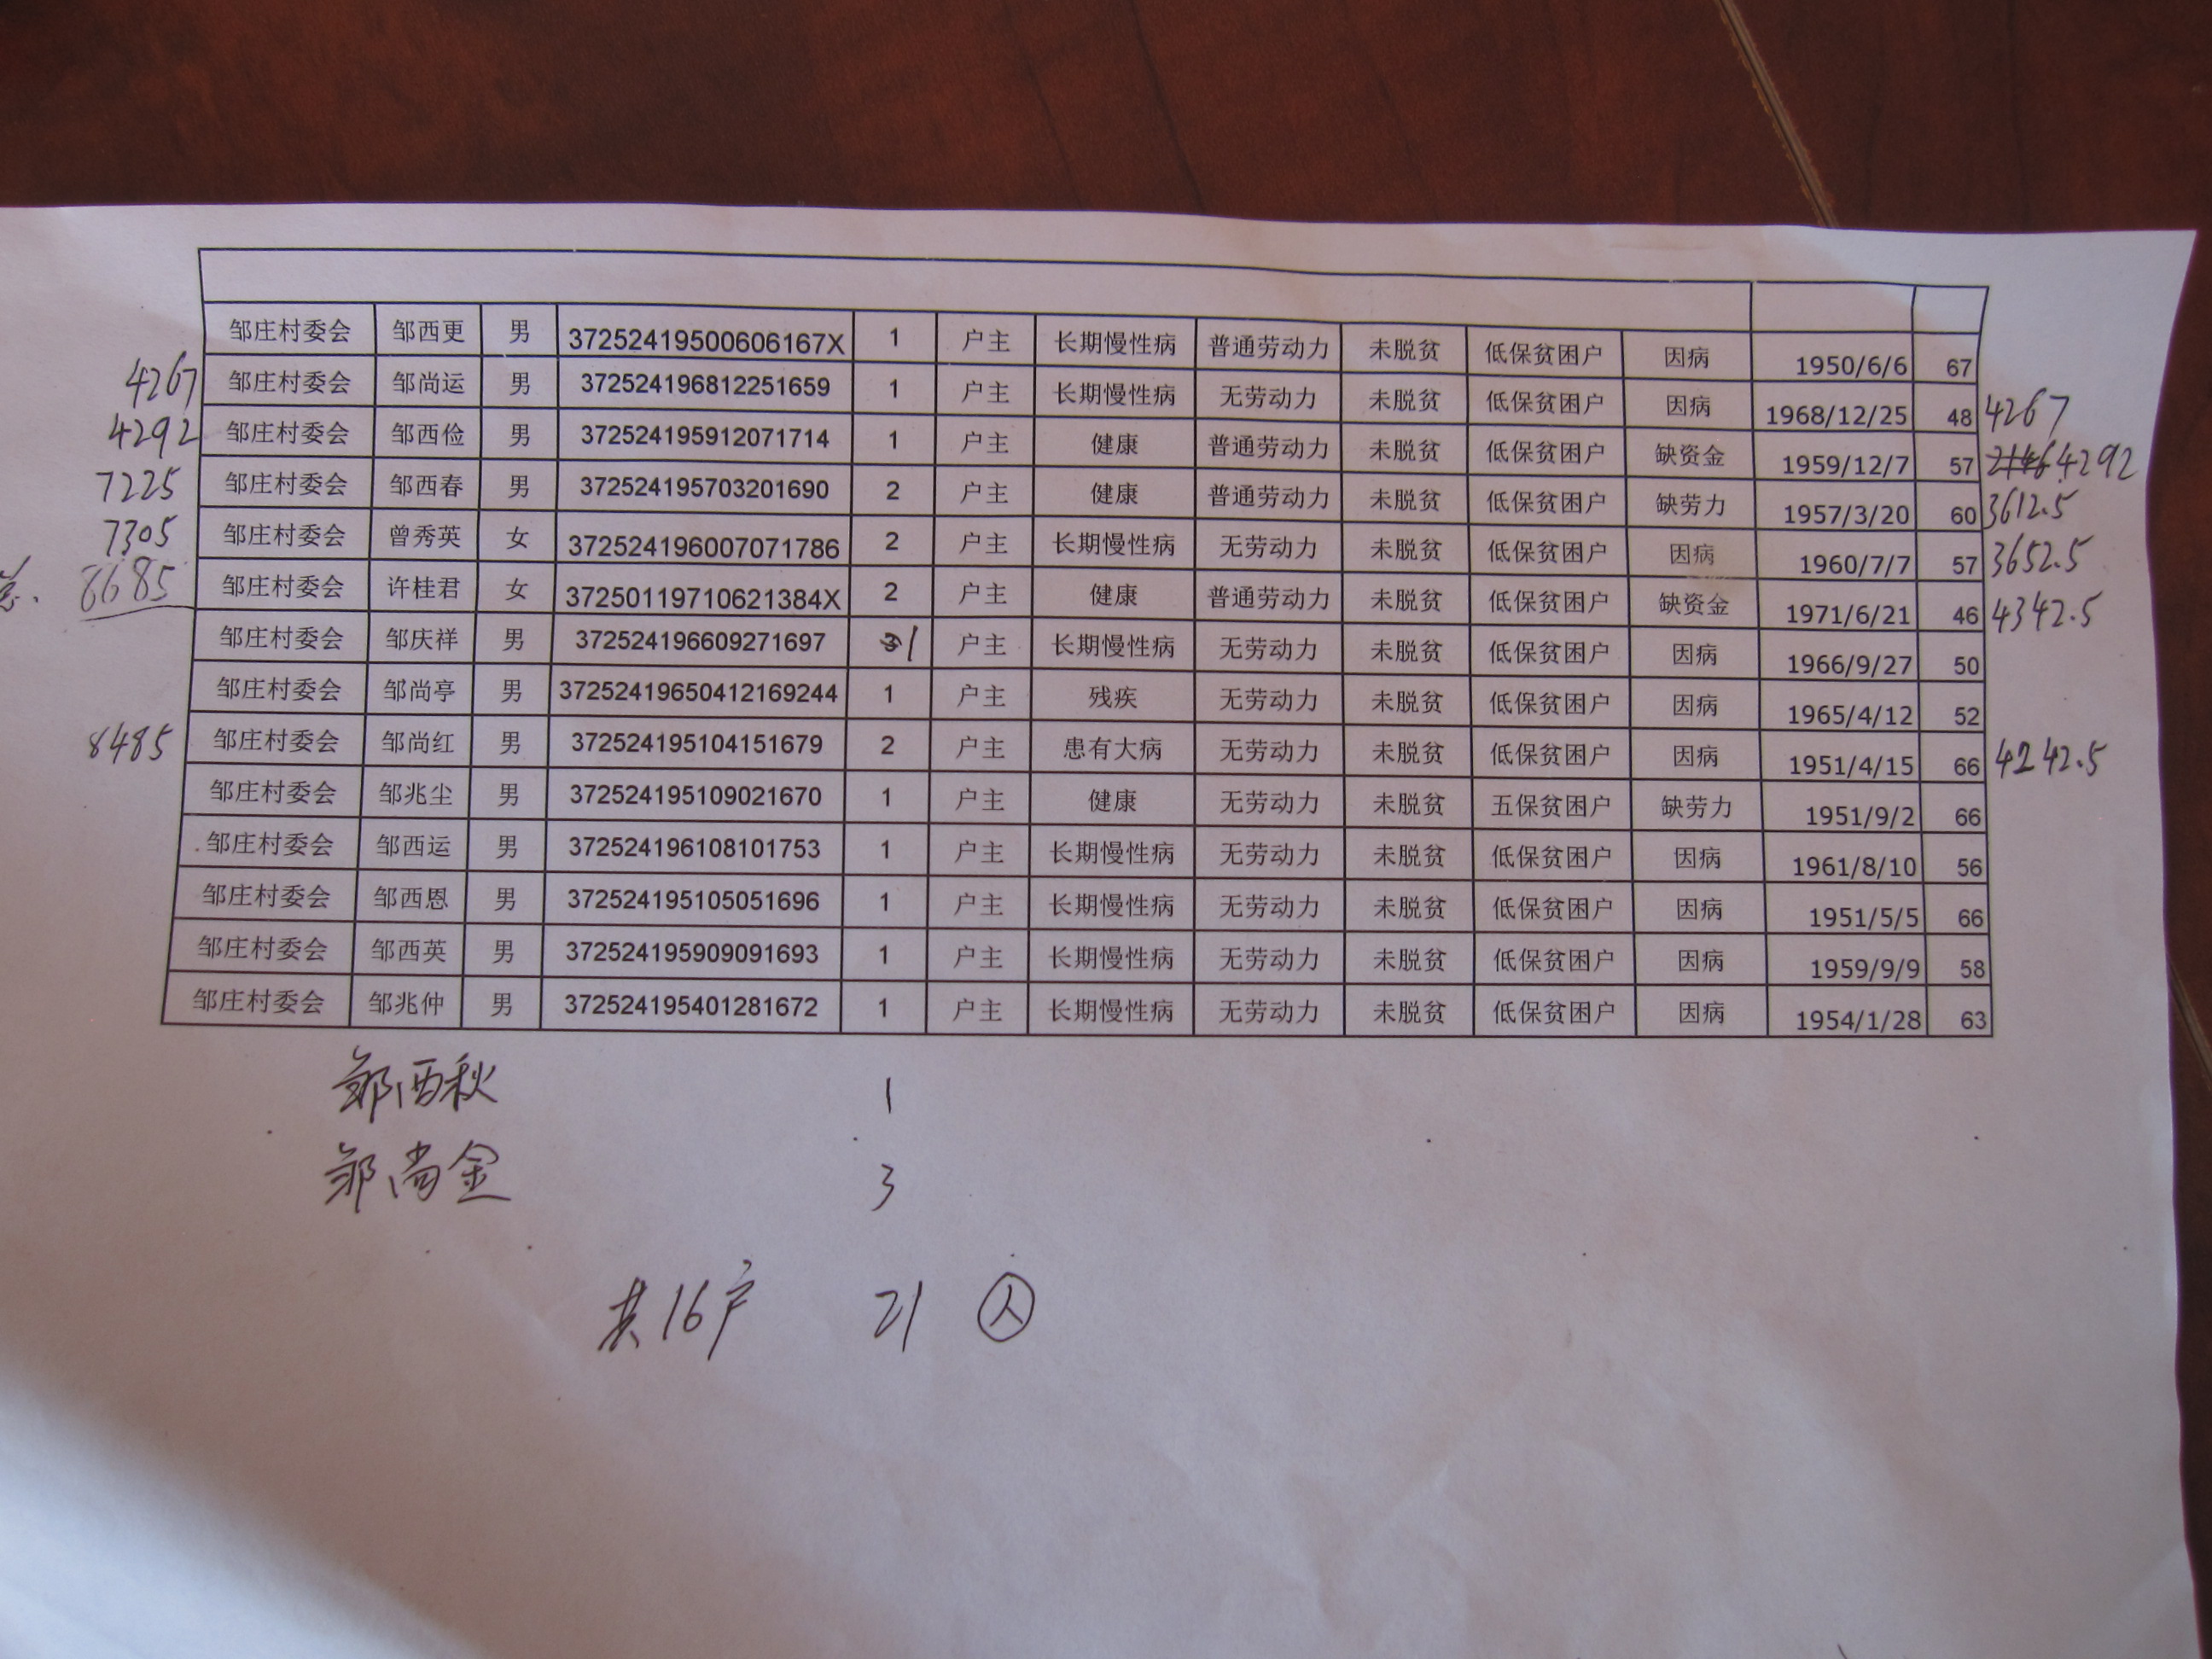 邹庄村委会 邹西更 男 37252419500606167X 1 户主 长期慢性病 普通劳动力 未脱贫 低保贫困户 因病 1950/6/6 67
4267 邹庄村委会 邹尚运 男 372524196812251659 1 户主 长期慢性病 无劳动力 未脱贫 低保贫困户 因病 1968/12/25 48 4267
4292 邹庄村委会 邹西俭 男 372524195912071714 1 户主 健康 普通劳动力 未脱贫 低保贫困户 缺资金 1959/12/7 57 4292
7225 邹庄村委会 邹西春 男 372524195703201690 2 户主 健康 普通劳动力 未脱贫 低保贫困户 缺劳力 1957/3/20 60 3612.5
7305 邹庄村委会 曾秀英 女 372524196007071786 2 户主 长期慢性病 无劳动力 未脱贫 低保贫困户 因病 1960/7/7 57 3652.5
8685 邹庄村委会 许桂君 女 37250119710621384X 2 户主 健康 普通劳动力 未脱贫 低保贫困户 缺资金 1971/6/21 46 4342.5
邹庄村委会 邹庆祥 男 372524196609271697 3 1 户主 长期慢性病 无劳动力 未脱贫 低保贫困户 因病 1966/9/27 50
邹庄村委会 邹尚亭 男 37252419650412169244 1 户主 残疾 无劳动力 未脱贫 低保贫困户 因病 1965/4/12 52
8485 邹庄村委会 邹尚红 男 372524195104151679 2 户主 患有大病 无劳动力 未脱贫 低保贫困户 因病 1951/4/15 66 4242.5
邹庄村委会 邹兆尘 男 372524195109021670 1 户主 健康 无劳动力 未脱贫 五保贫困户 缺劳力 1951/9/2 66
邹庄村委会 邹西运 男 372524196108101753 1 户主 长期慢性病 无劳动力 未脱贫 低保贫困户 因病 1961/8/10 56
邹庄村委会 邹西恩 男 372524195105051696 1 户主 长期慢性病 无劳动力 未脱贫 低保贫困户 因病 1951/5/5 66
邹庄村委会 邹西英 男 372524195909091693 1 户主 长期慢性病 无劳动力 未脱贫 低保贫困户 因病 1959/9/9 58
邹庄村委会 邹兆仲 男 372524195401281672 1 户主 长期慢性病 无劳动力 未脱贫 低保贫困户 因病 1954/1/28 63
邹西秋 1
邹尚金 3
共16户 21 人